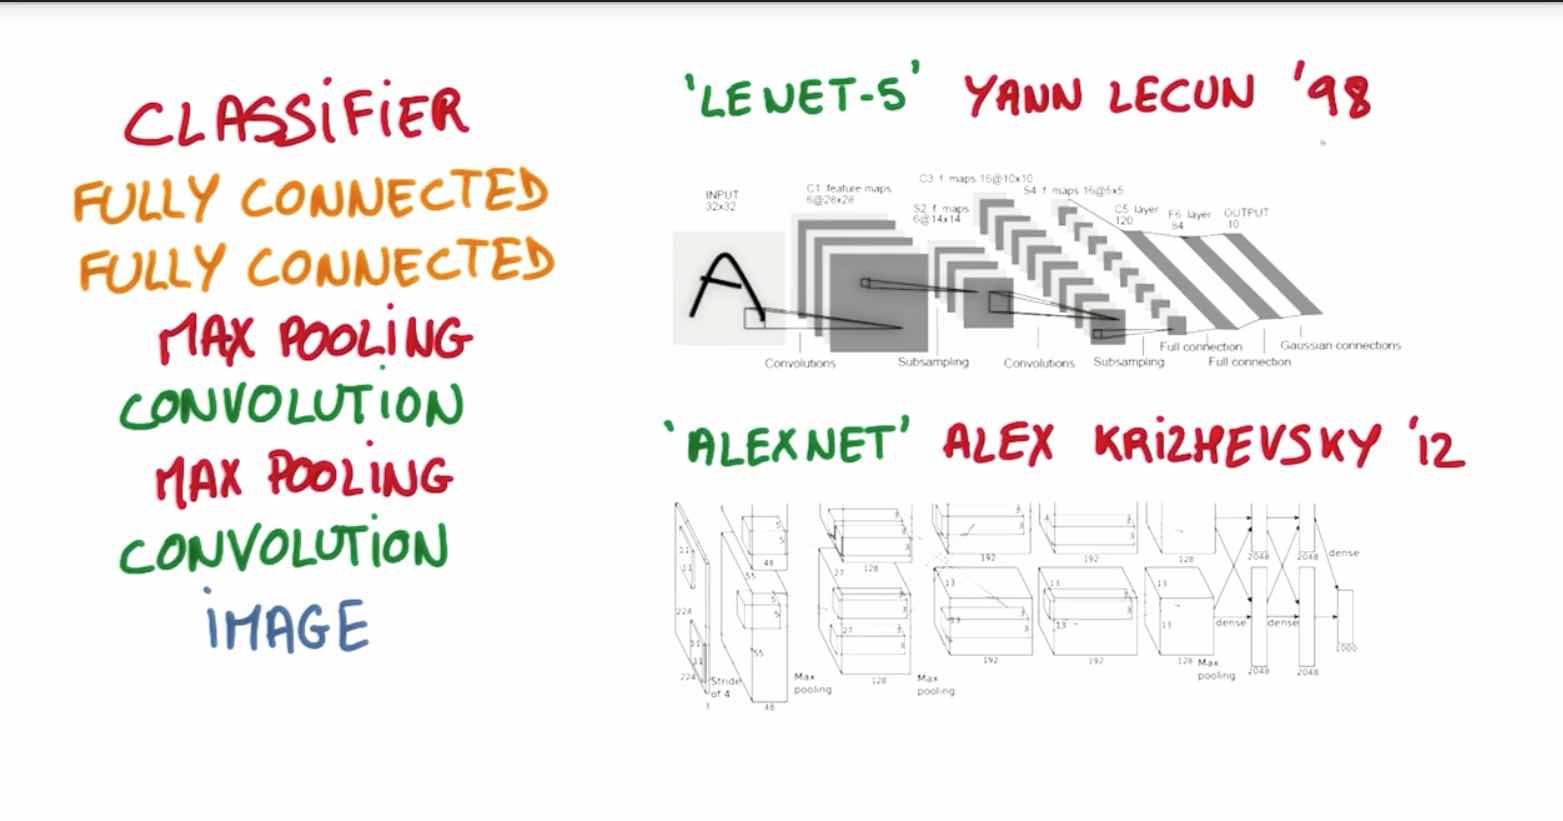 CLASSIFIER
FULLY CONNECTED
FULLY CONNECTED
MAX POOLING
CONVOLUTION
MAX POOLING
CONVOLUTION
IMAGE
'LENET-5' YANN LECUN '98
INPUT
32x32
C1: feature maps
6@28x28
S2: f. maps
6@14x14
C3: f. maps 16@10x10
S4: f. maps 16@5x5
C5: layer
120
F6: layer
84
OUTPUT
10
Convolutions
Subsampling
Convolutions
Subsampling
Full connection
Full connection
Gaussian connections
'ALEXNET' ALEX KRIZHEVSKY '12
5
5
48
3
3
128
3
3
192
3
3
192
128
2048
2048
dense
11
11
224
11
11
224
3
Stride
of 4
55
5
5
55
48
Max
pooling
27
3
3
27
3
3
128
Max
pooling
13
3
13
3
192
13
3
13
3
192
13
13
128
Max
pooling
dense
dense
2048
2048
1000